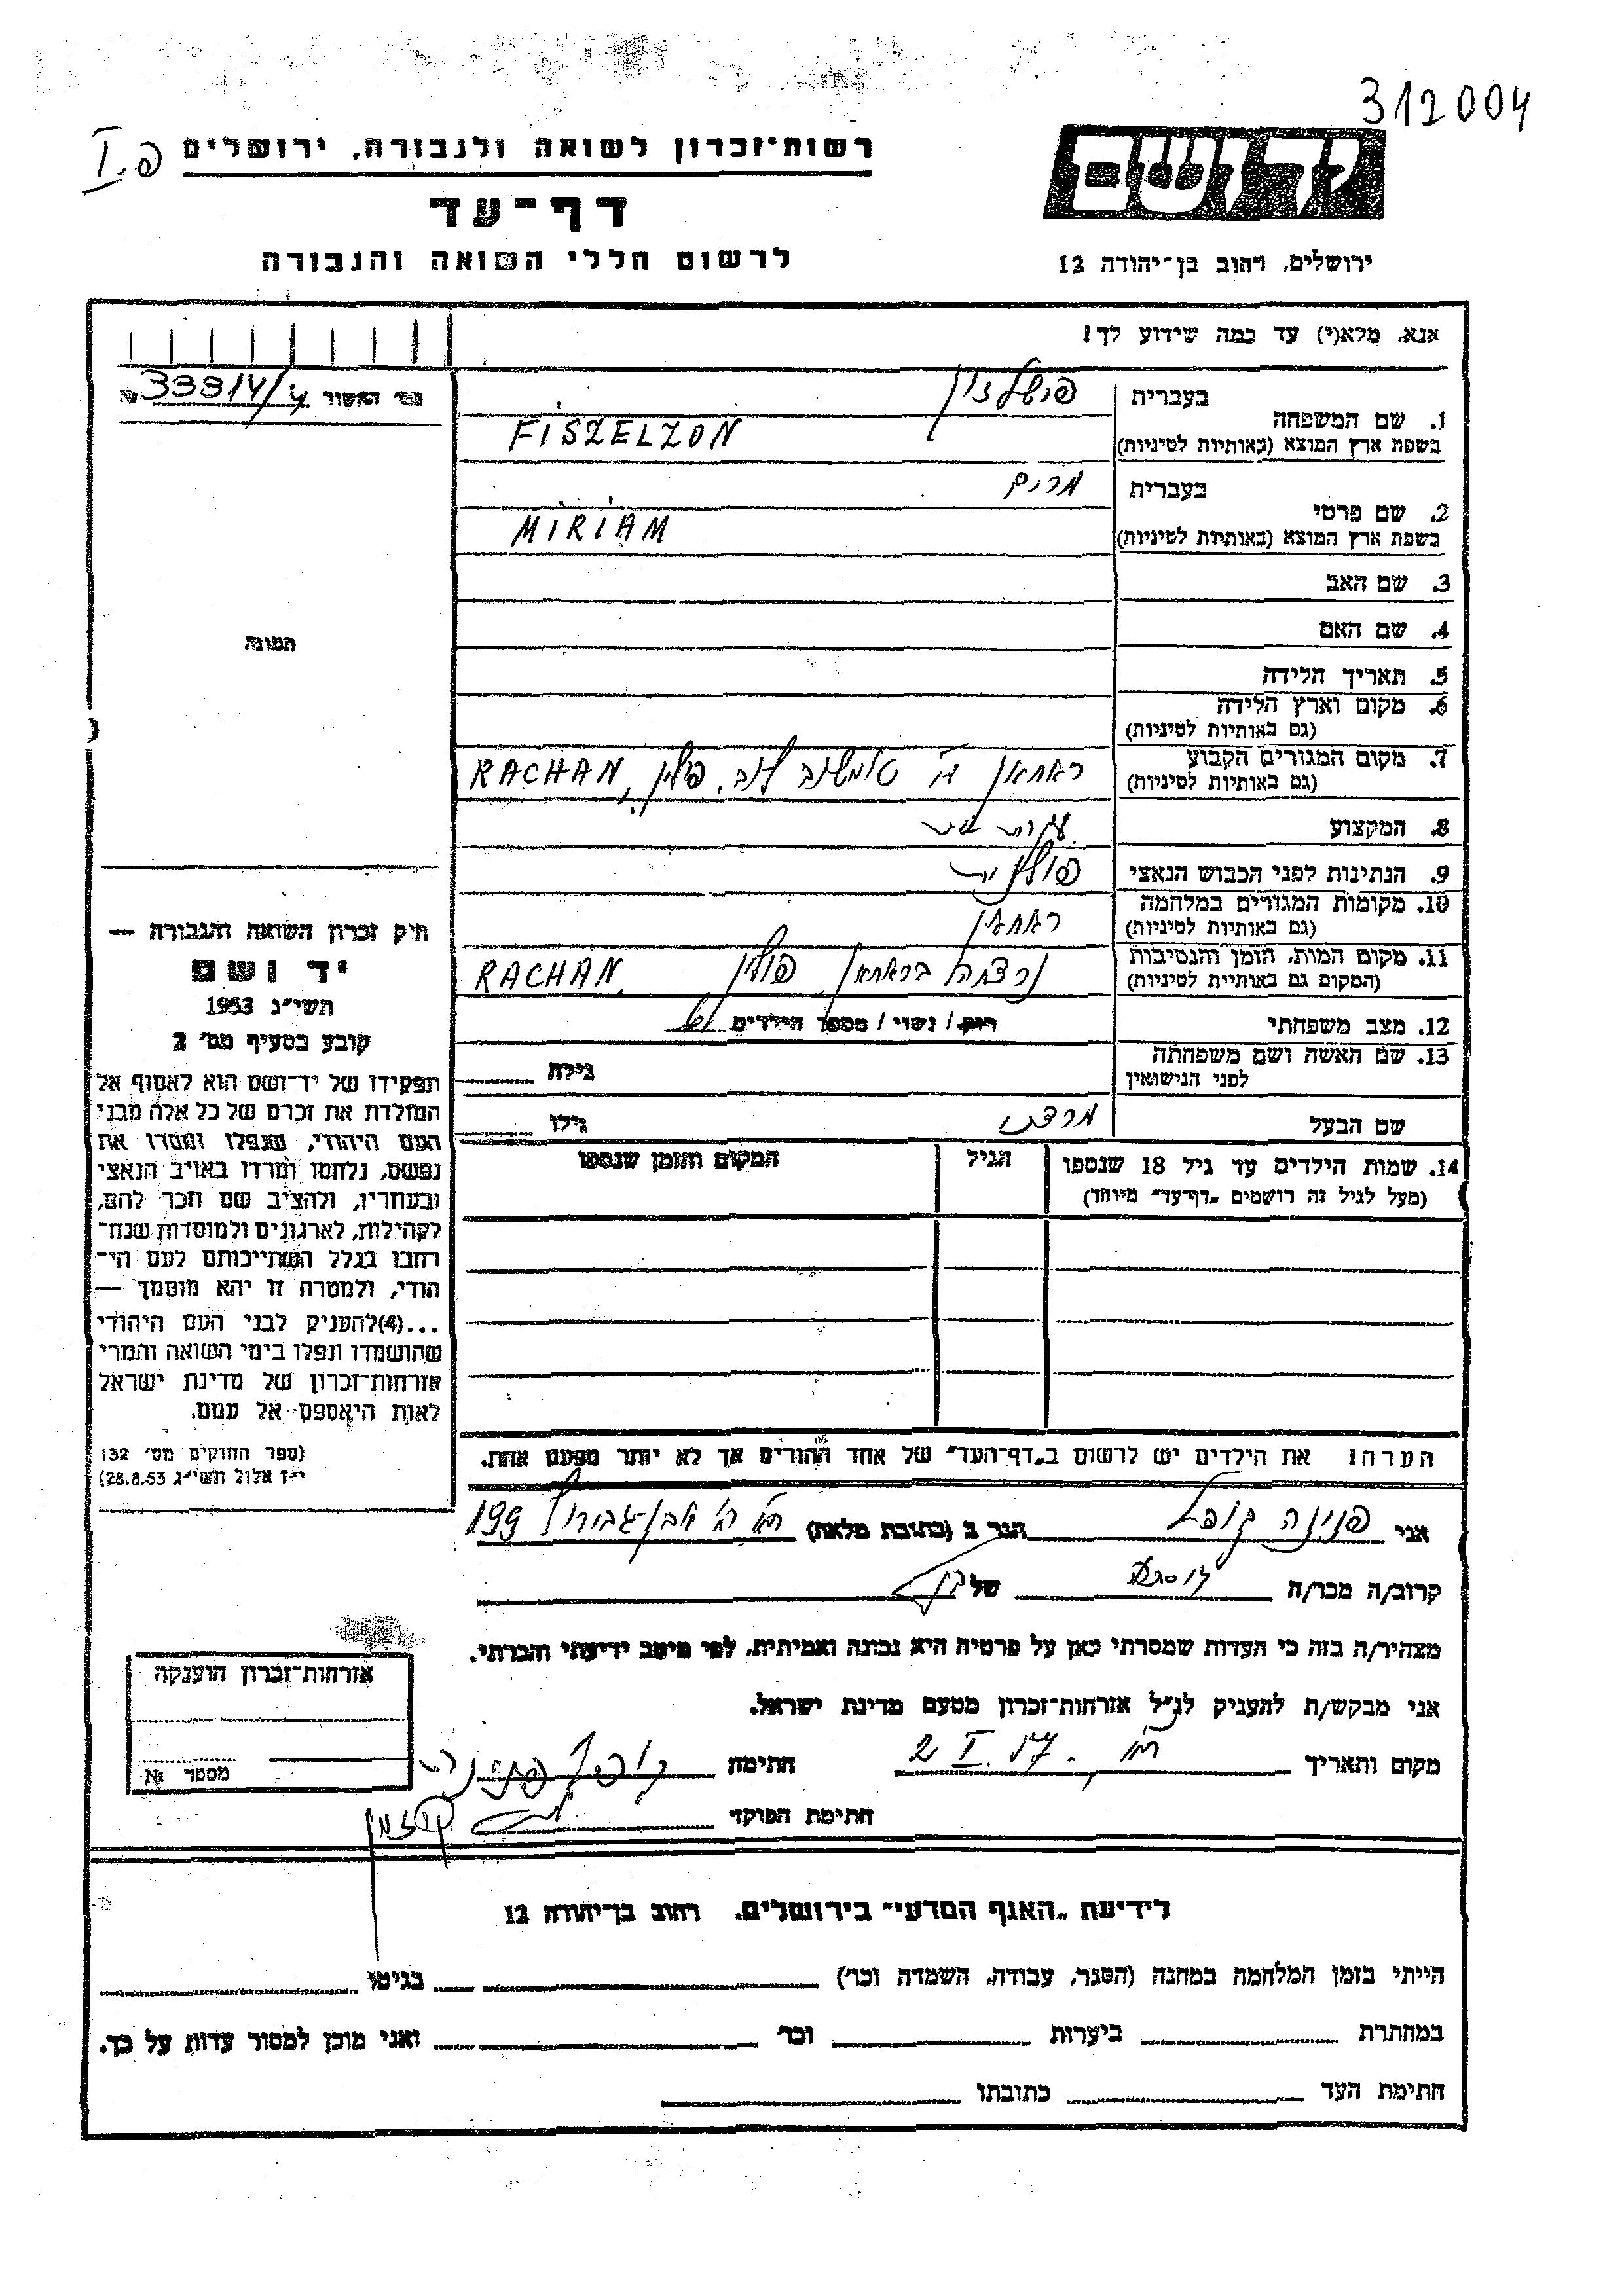 312004
פ. I
רשות-זכרון לשואה ולגבורה, ירושלים
דף-עד
לרשום חללי השואה והגבורה
ידושם
ירושלים, רחוב בן-יהודה 12
אנא, מלא(י) עד כמה שידוע לך!
מס' האשור № 33314/4
1. שם המשפחה
בעברית פישלזון
בשפת ארץ המוצא (באותיות לטיניות) FISZELZON
2. שם פרטי
בעברית מרים
בשפת ארץ המוצא (באותיות לטיניות) MIRIAM
3. שם האב
4. שם האם
5. תאריך הלידה
6. מקום וארץ הלידה
(גם באותיות לטיניות)
7. מקום המגורים הקבוע
(גם באותיות לטיניות)
ראחאן פולין, RACHAN
8. המקצוע
9. הנתינות לפני הכבוש הנאצי
10. מקומות המגורים במלחמה
(גם באותיות לטיניות)
ראחאן
11. מקום המות, הזמן והנסיבות
(המקום גם באותיות לטיניות)
נרצחה בראחאן פולין RACHAN
12. מצב משפחתי רווק / נשוי / מספר הילדים
13. שם האשה ושם משפחתה
לפני הנישואין
גילה
שם הבעל
גילו
14. שמות הילדים עד גיל 18 שנספו
(מעל לגיל זה רושמים "דף-עד" מיוחד)
הגיל
המקום והזמן שנספו
הערה! את הילדים יש לרשום ב"דף-העד" של אחד ההורים אך לא יותר מפעם אחת.
תמונה
חוק זכרון השואה והגבורה —
יד ושם
תשי"ג 1953
קובע בסעיף מס' 2
תפקידו של יד-ושם הוא לאסוף אל
המולדת את זכרם של כל אלה מבני
העם היהודי, שנפלו ומסרו את
נפשם, נלחמו ומרדו באויב הנאצי
ובעוזריו, ולהציב שם וזכר להם,
לקהילות, לארגונים ולמוסדות שנח-
רבו בגלל השתייכותם לעם הי-
הודי, ולמטרה זו יהא מוסמך —
...(4) להעניק לבני העם היהודי
שהושמדו ונפלו בימי השואה והמרי
אזרחות-זכרון של מדינת ישראל
לאות היאספם אל עמם.
(ספר החוקים מס' 132
י"ז אלול תשי"ג 28.8.53)
אני פנינה קופל הגר ב (כתובת מלאה) ת"א ר' אבן-גבירול 199
קרוב/ה מכר/ה של
מצהיר/ה בזה כי העדות שמסרתי כאן על פרטיה היא נכונה ואמיתית, לפי מיטב ידיעתי והכרתי.
אני מבקש/ת להעניק לנ"ל אזרחות-זכרון מטעם מדינת ישראל.
מקום ותאריך ת"א, 2.I.57 חתימה קופל פנינה
חתימת הפוקד
אזרחות-זכרון הוענקה
מספר №
לידיעת "האגף המדעי" בירושלים, רחוב בן-יהודה 12
הייתי בזמן המלחמה במחנה (הסגר, עבודה, השמדה וכו') בגיטו
במחתרת ביערות וכו' ואני מוכן למסור עדות על כך.
חתימת העד כתובתו